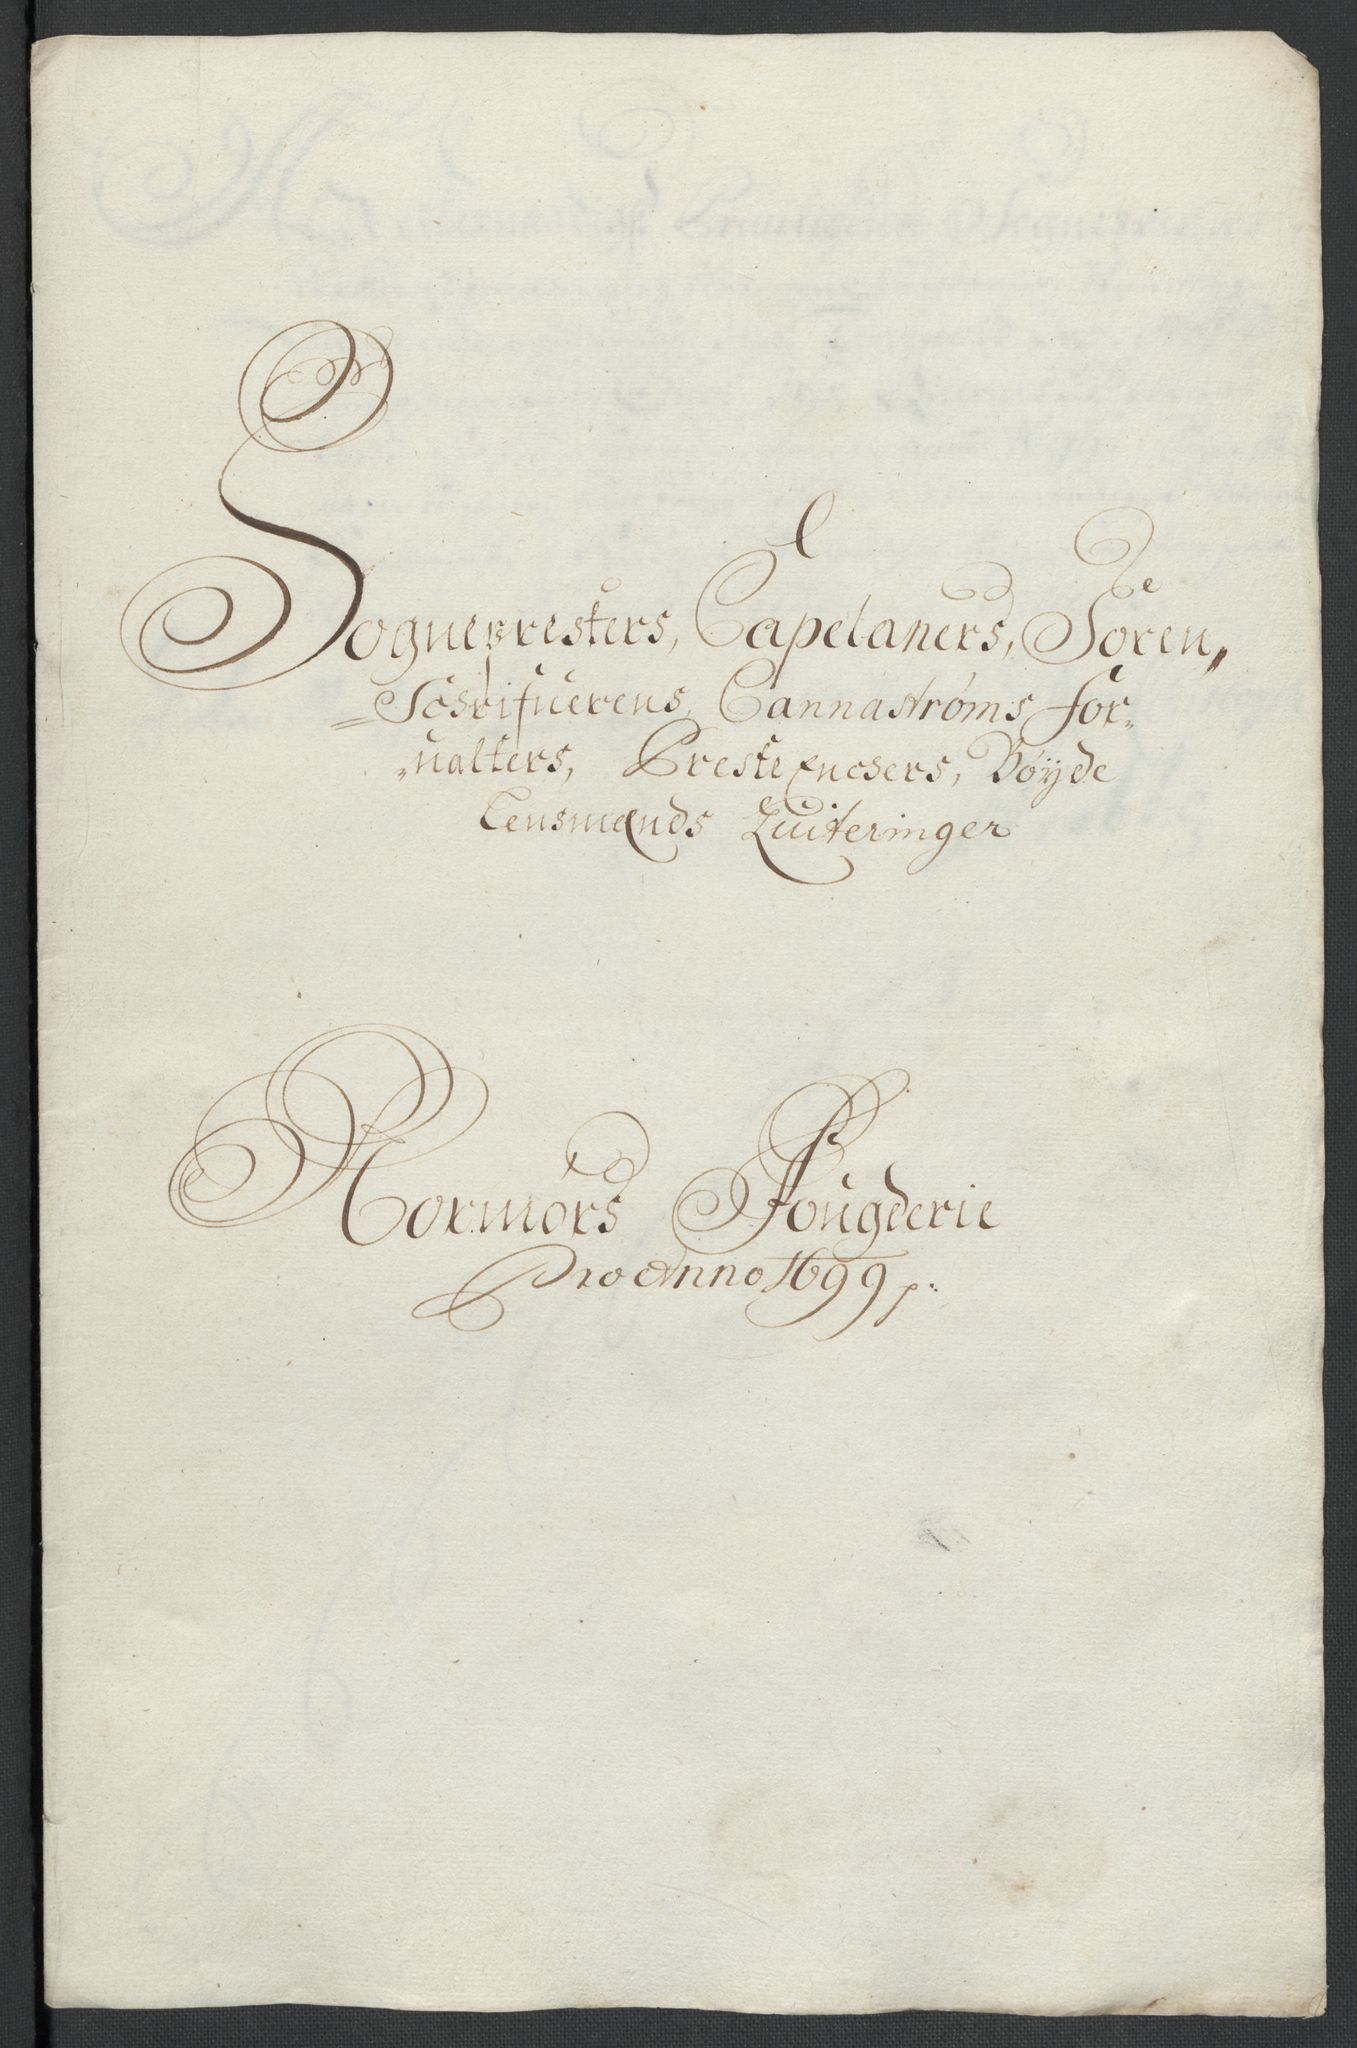 Sognepresters, Capelaners, Soren„
=Schrifuerens, Cannaströms for„
„ualters, Preste Encher s, Böyde
Lensmends Quiteringer
Normörs Fougderie
Pro Anno 1699 /: